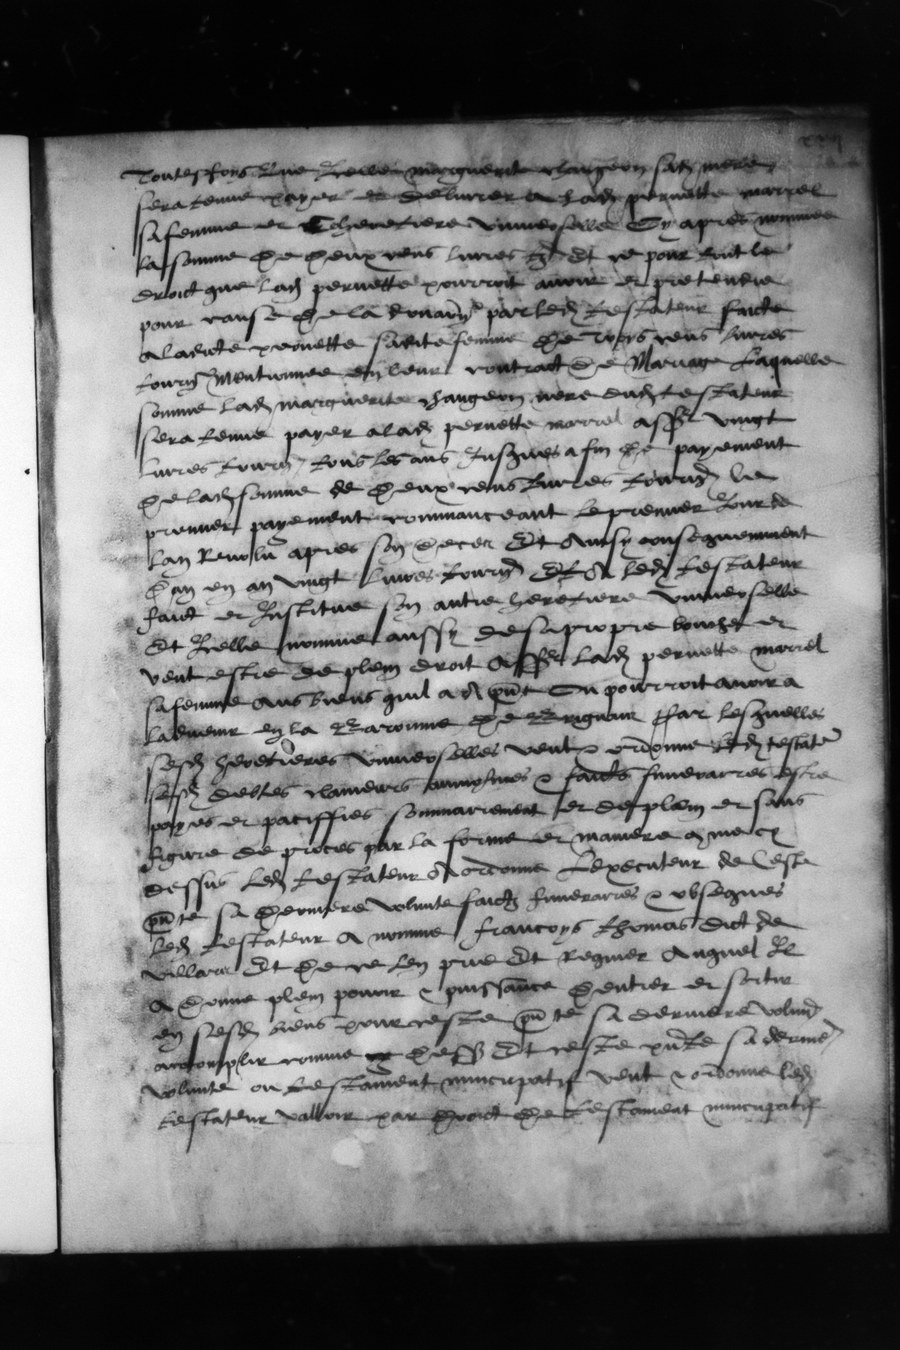 Toutesfoys que lad marguerite changeon sad mere
sera tenue payer et delivrer a lad pernette morrel
sa femme et heretiere universelle cy apres nommee
la somme de deux cens livres tz Et ce pour tout le
droict que lad pernette pourroit avoir et pretendre
pour cause de la par led testateur faicte
a ladicte pernette sadite femme de troys cens livres
tourn mentionnee en leur contract de mariage Laquelle
somme lad marguerite changeon mere dud testateur
sera tenue payer a lad pernette morrel assr vingt
livres tourn tous les ans jusques a fin de payement
de lad somme de deux cens livres tourn le
premier payement commanceant le premier jour de
lan revolu apres son deces Et ainsy consequemment
dan en an vingt livres tourn Et a led testateur
faict et institue son autre heretiere universelle
Et icelle nomme aussy de sa propre bouche et
veut estre de plein droit assr lad pernette morrel
sa femme aux biens quil a a pnt ou pourroit avoir a
ladvenir en la Baronnie de par lesquelles
sesd heretieres universelles veut & ordonne led testater
sesd debtes clameurs & faictz funerarres estre
payes et paciffies sommairement et de plein et sans
figure de proces par la forme et maniere
dessus led testateur a ordonne Lexecuteur de ceste
pnte sa derniere volunte faictz funerarres & obseques
led testateur a nomme francoys thomas dict de
villars Et de ce len prie Et requier Auquel il
a donne plein pouvoir & puissance dentrer et sortir
en sesd biens pour ceste pnte sa derniere volunt
accomplir comme dess Et ceste pnte sa derniere
volunte ou testament nuncupatif veut & ordonne led
testateur valloir par droict de testament nuncupatif